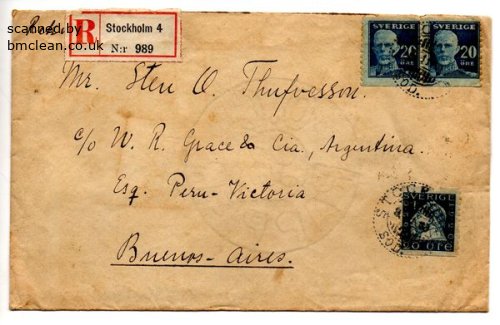 scanned by
bmclean.co.uk
R
Stockholm 4
N:r 989
SVERIGE
20
ÖRE
SVERIGE
20
ÖRE
Mr. Sten O. Thufvesson.
c/o W. R. Grace & Cia, Argentina.
Esq. Peru-Victoria
Buenos-Aires.
SVERIGE
20 ÖRE